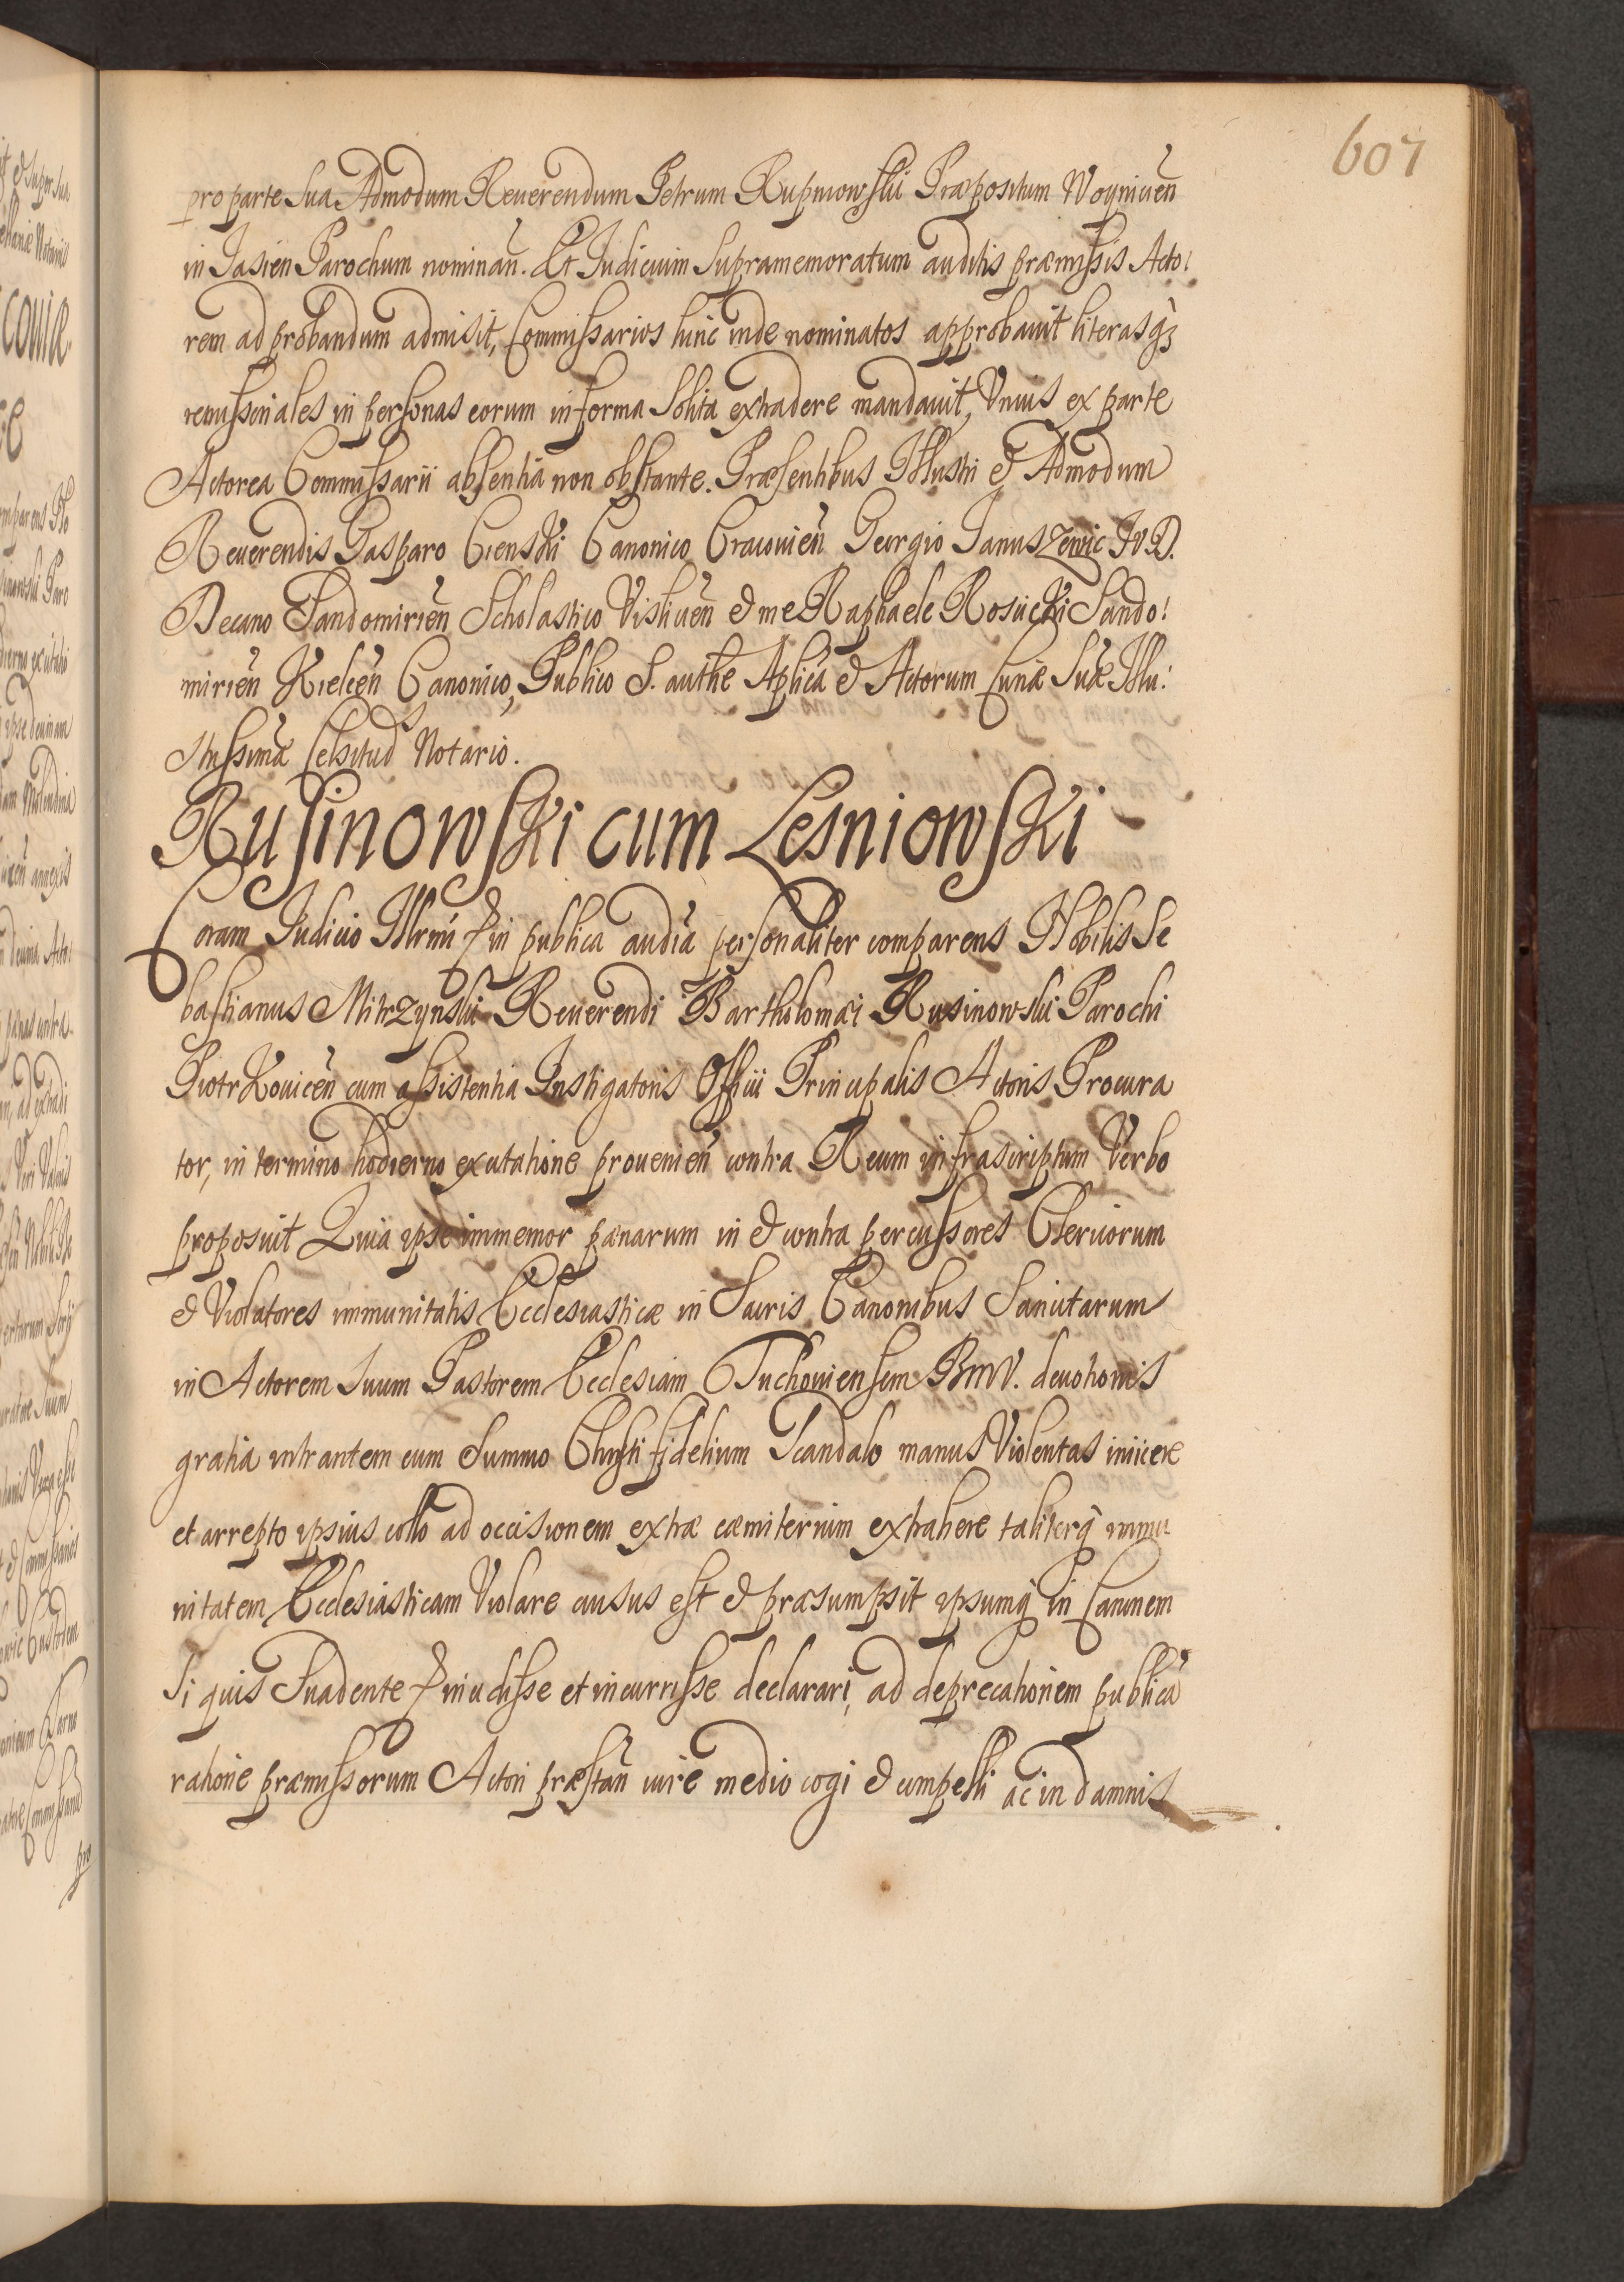 607
pro parte sua Admodum Reuerendum Petrum Rupniowski Præpositum Woynicēn
in Jasień Parochum nominan̄. Et Iudicium supramemoratum auditis præmissis Acto:
rem ad probandum admisit, Commissarios hinc inde nominatos approbauit literasq́
remissoriales in personas eorum in forma solita extradere mandauit, Vnius ex parte
Actorea Commissarii absentia non obstante. Præsentibus Illustri et Admodum
Reuerendis Gasparo Cienski Canonico Cracouien̄ Georgio Januszewic IVD.
Decano Sandomirien̄ Scholastico Vislicen̄ et me Raphaele Rosicki Sando:
mirien̄ Kielcen̄ Canonico, Publico S. authe Aplicā et Actorum Curiæ Suæ Illu:
strissimæ Celsitud Notario.
Rusinowski cum Lesniowski
Coram Iudicio Illrmi & in publica audiā personaliter comparens Nobilis Se
bastianus Mitrzynski Reuerendi Bartholomæi Rusinowski Parochi
Piotrkouicen̄ cum assistentia Instigatoris Officii Principalis Actoris Procura
tor, in termino hodierno ex citatione prouenien̄ contra Reum infrascriptum Verbo
proposuit Quia ipse immemor pænarum in et contra percussores Clericorum
et Violatores immunitatis Ecclesiasticæ in Sacris Canonibus Sancitarum
in Actorem suum Pastorem Ecclesiam Tuchouiensem BmV. deuotionis
gratia intrantem cum summo Christi fidelium Scandalo manus Violentas iniicere
et arrepto ipsius collo ad occisionem extra cæmiterium extrahere taliterq́ immu
nitatem Ecclesiasticam Violare ausus est et præsumpsit ipsumq́ in Canonem
Si quis Suadente & incidisse et incurrisse declarari, ad deprecationem publicā
ratione præmissorum Actori præstan̄ iuris medio cogi et compelli ac in damnis